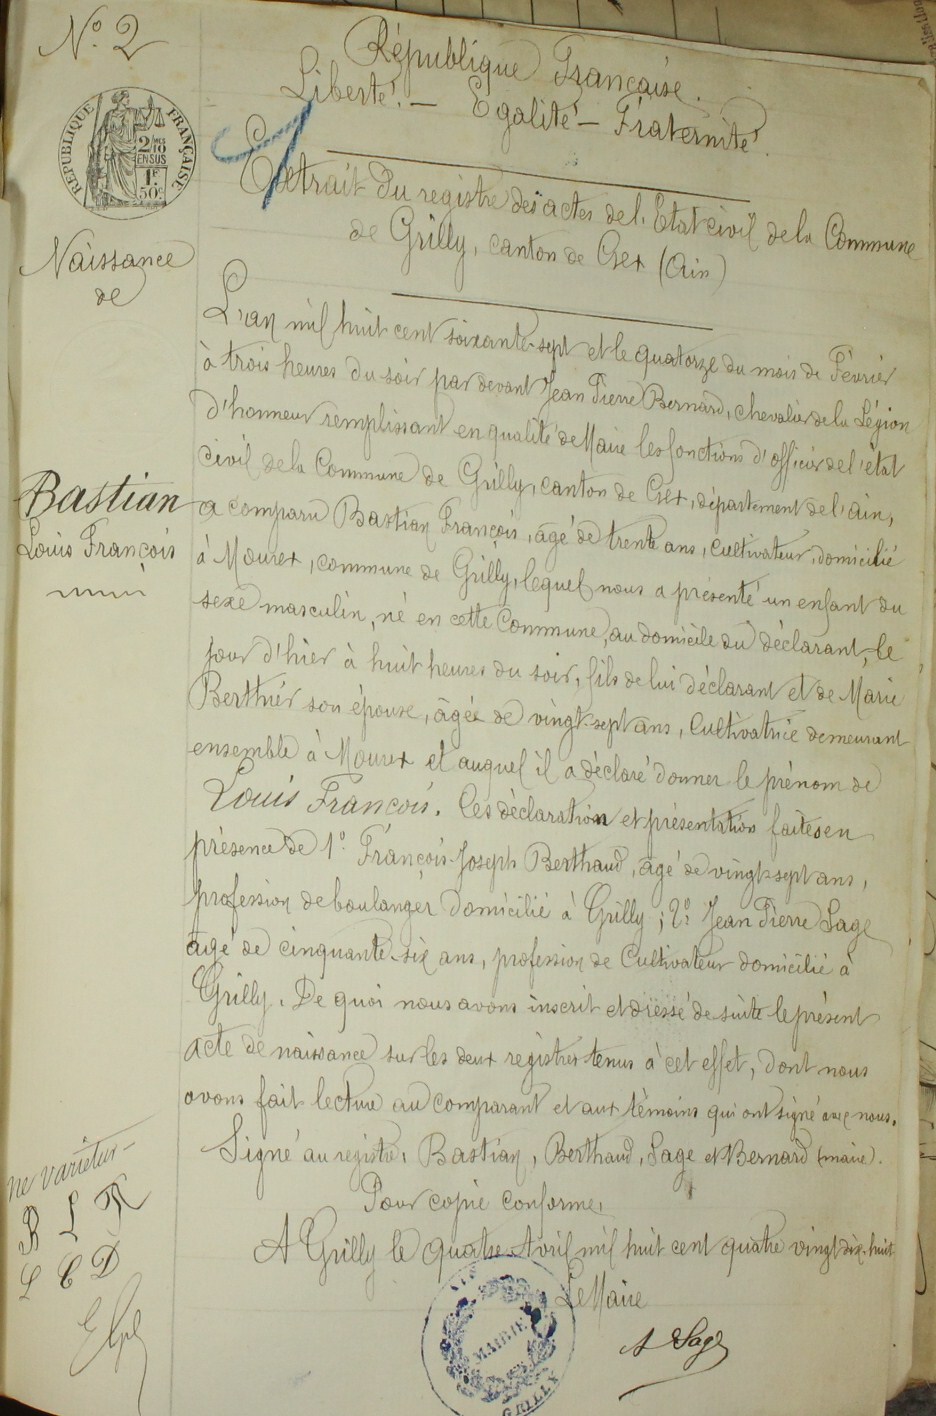 N° 2
République Française.
Liberté. — Egalité — Fraternité.
RÉPUBLIQUE FRANÇAISE
2/10
EN SUS
1F
50c
Extrait du registre des actes de l'Etat civil de la Commune
de Grilly, canton de Gex (Ain)
Naissance
de
Bastian
Louis François
L'an mil huit cent soixante-sept et le quatorze du mois de Février
à trois heures du soir par devant Jean Pierre Bernard, chevalier de la Légion
d'honneur remplissant en qualité de Maire les fonctions d'officier de l'état
civil de la Commune de Grilly, canton de Gex, département de l'ain,
a comparu Bastian François, âgé de trente ans, Cultivateur, domicilié
à Mourex, commune de Grilly, lequel nous a présenté un enfant du
sexe masculin, né en cette Commune, au domicile du déclarant, le
jour d'hier à huit heures du soir, fils de lui déclarant et de Marie
Berthier son épouse, âgée de vingt-sept ans, Cultivatrice demeurant
ensemble à Mourex et auquel il a déclaré donner le prénom de
Louis François. Ces déclaration et présentation faites en
présence de 1° François-Joseph Berthaud, âgé de vingt-sept ans,
profession de boulanger domicilié à Grilly; 2° Jean Pierre Sage
âgé de cinquante-six ans, profession de Cultivateur domicilié à
Grilly. De quoi nous avons inscrit et dressé de suite le présent
acte de naissance sur les deux registres tenus à cet effet, dont nous
avons fait lecture au comparant et aux témoins qui ont signé avec nous.
Signé au registre, Bastian, Berthaud, Sage et Bernard (maire).
Pour copie conforme,
A Grilly le quatre Avril mil huit cent quatre vingt dix-huit
Le Maire
A Sage
MAIRIE
GRILLY
ne varietur
B L
L C D